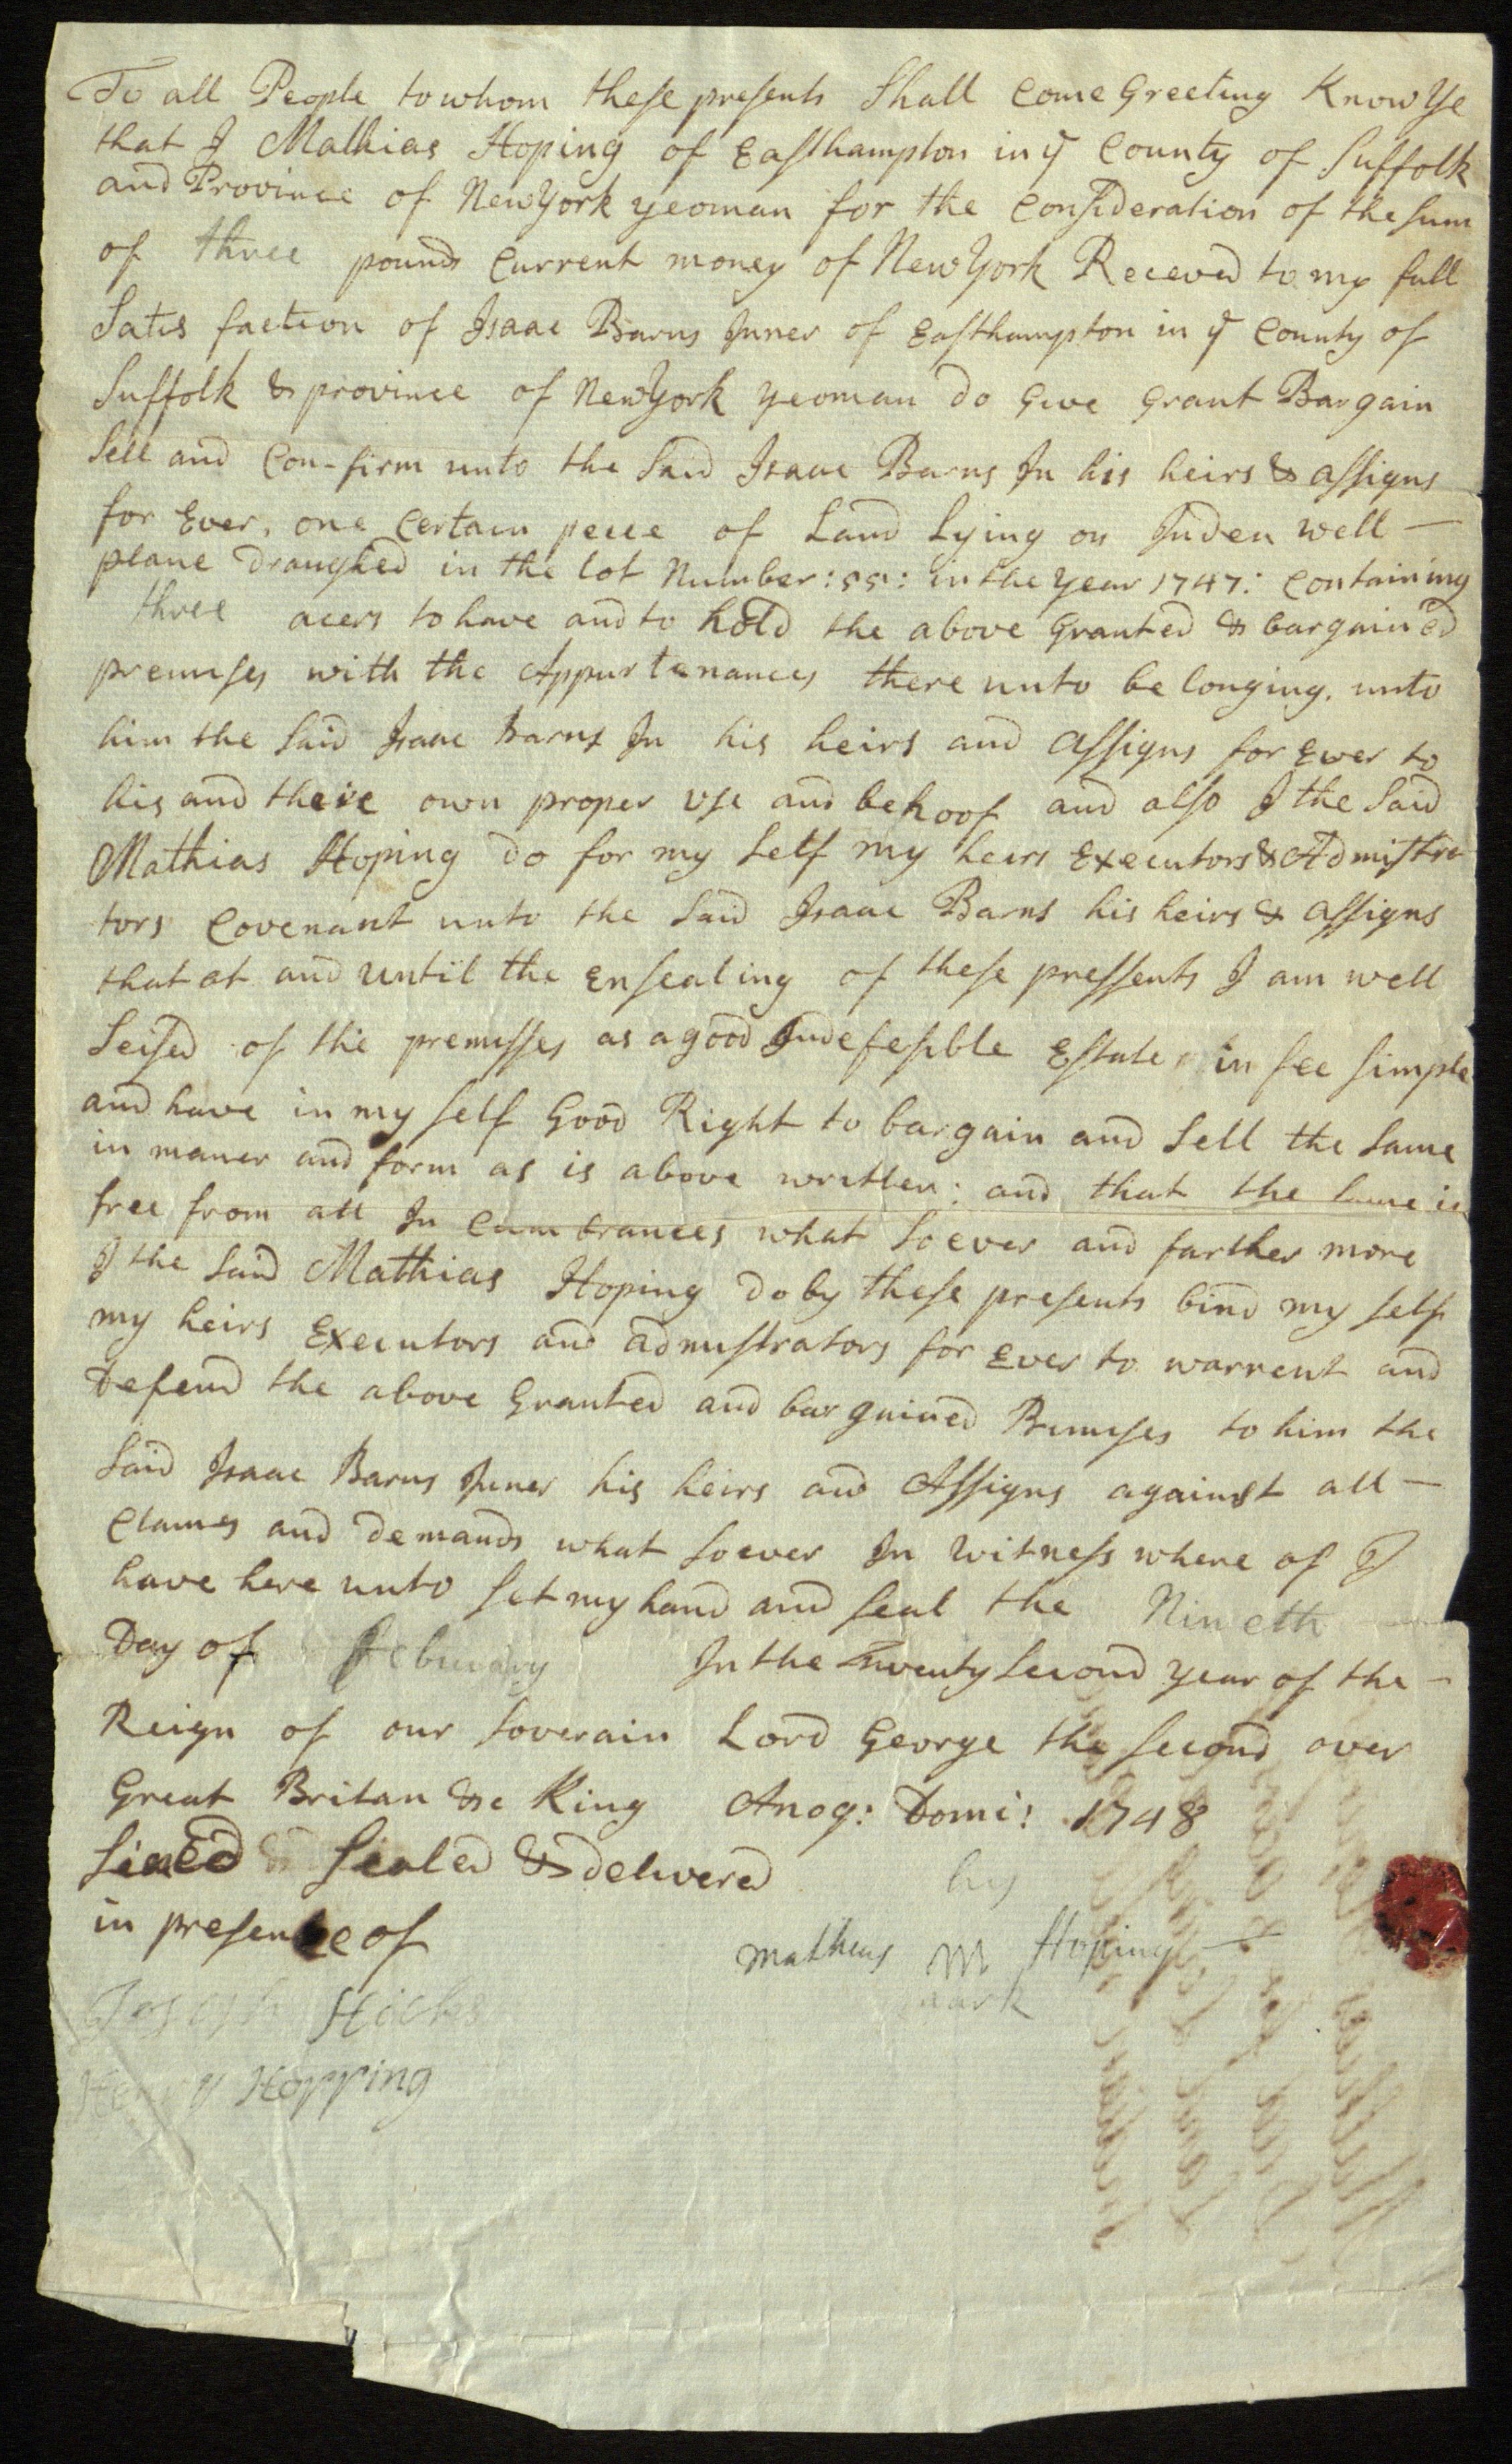 To all People to whom these presents Shall Come Greeting Know Ye
that I Mathias Hoping of Easthampton in ye County of Suffolk
and Province of New York yeoman for the Consideration of the sum
of three pounds Current money of New York Receved to my full
Satis faction of Isaac Barns Juner of Easthampton in ye County of
Suffolk & province of New York yeoman do Give Grant Bargain
Sell and Con-firm unto the Said Isaac Barns Ju his heirs & assigns
for Ever, one Certain peice of Land Lying on Inden well —
plane Draughed in the lot Number : 55 : in the year 1747 : Containing
three acers to have and to hold the above Granted & bargained
premises with the Appurtenances there unto be longing, unto
him the Said Isaac Barns Ju his heirs and assigns for Ever to
his and theire own proper use and behoof and also I the Said
Mathias Hoping do for my Self my heirs Executors & Admistra
tors Covenant unto the Said Isaac Barns his heirs & assigns
that at and until the Ensealing of these pressents I am well
Seised of the premisses as a good Indefesible Estate in fee simple
and have in my self Good Right to bargain and Sell the Same
in maner and form as is above written : and that the same is
free from all In cumbrances what Soever and farther more
I the Said Mathias Hoping do by these presents bind my self
my heirs Executors and admistrators for Ever to warrent and
Defend the above Granted and bargained Premises to him the
Said Isaac Barns Juner his heirs and Assigns against all —
Clames and Demands what soever In Witness where of I
have here unto set my hand and seal the Nineth
Day of february In the Twenty Second year of the —
Reign of our Soverain Lord George the Second over
Great Britan &c King Anoq: Domi: 1748
Sined & Sealed & delivered his
in presence of
Mathias M Hoping
mark
Joseph Hicks
Henry Hopping